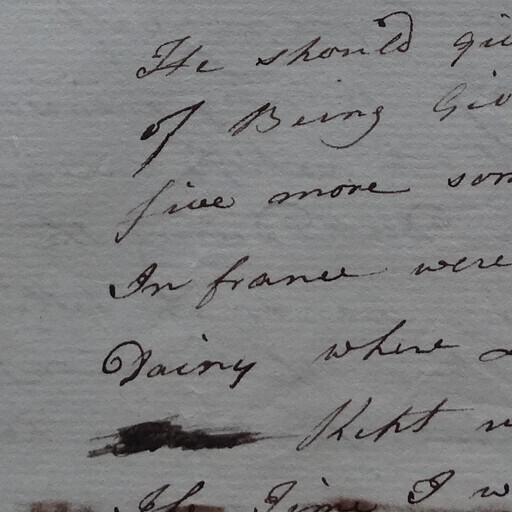 He should
of Being
five more som
In france were
Dairy where
Kept
The Time I w